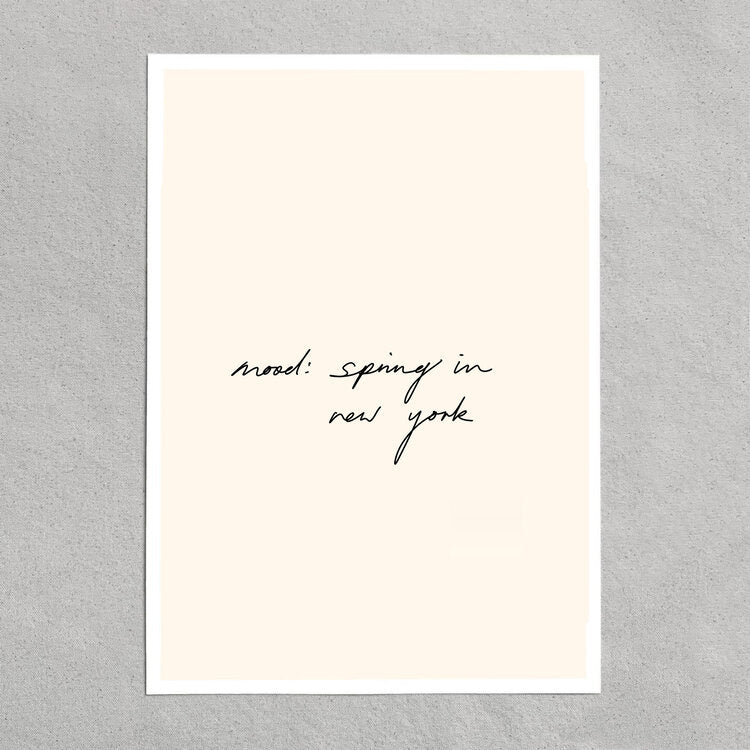 mood: spring in
new york